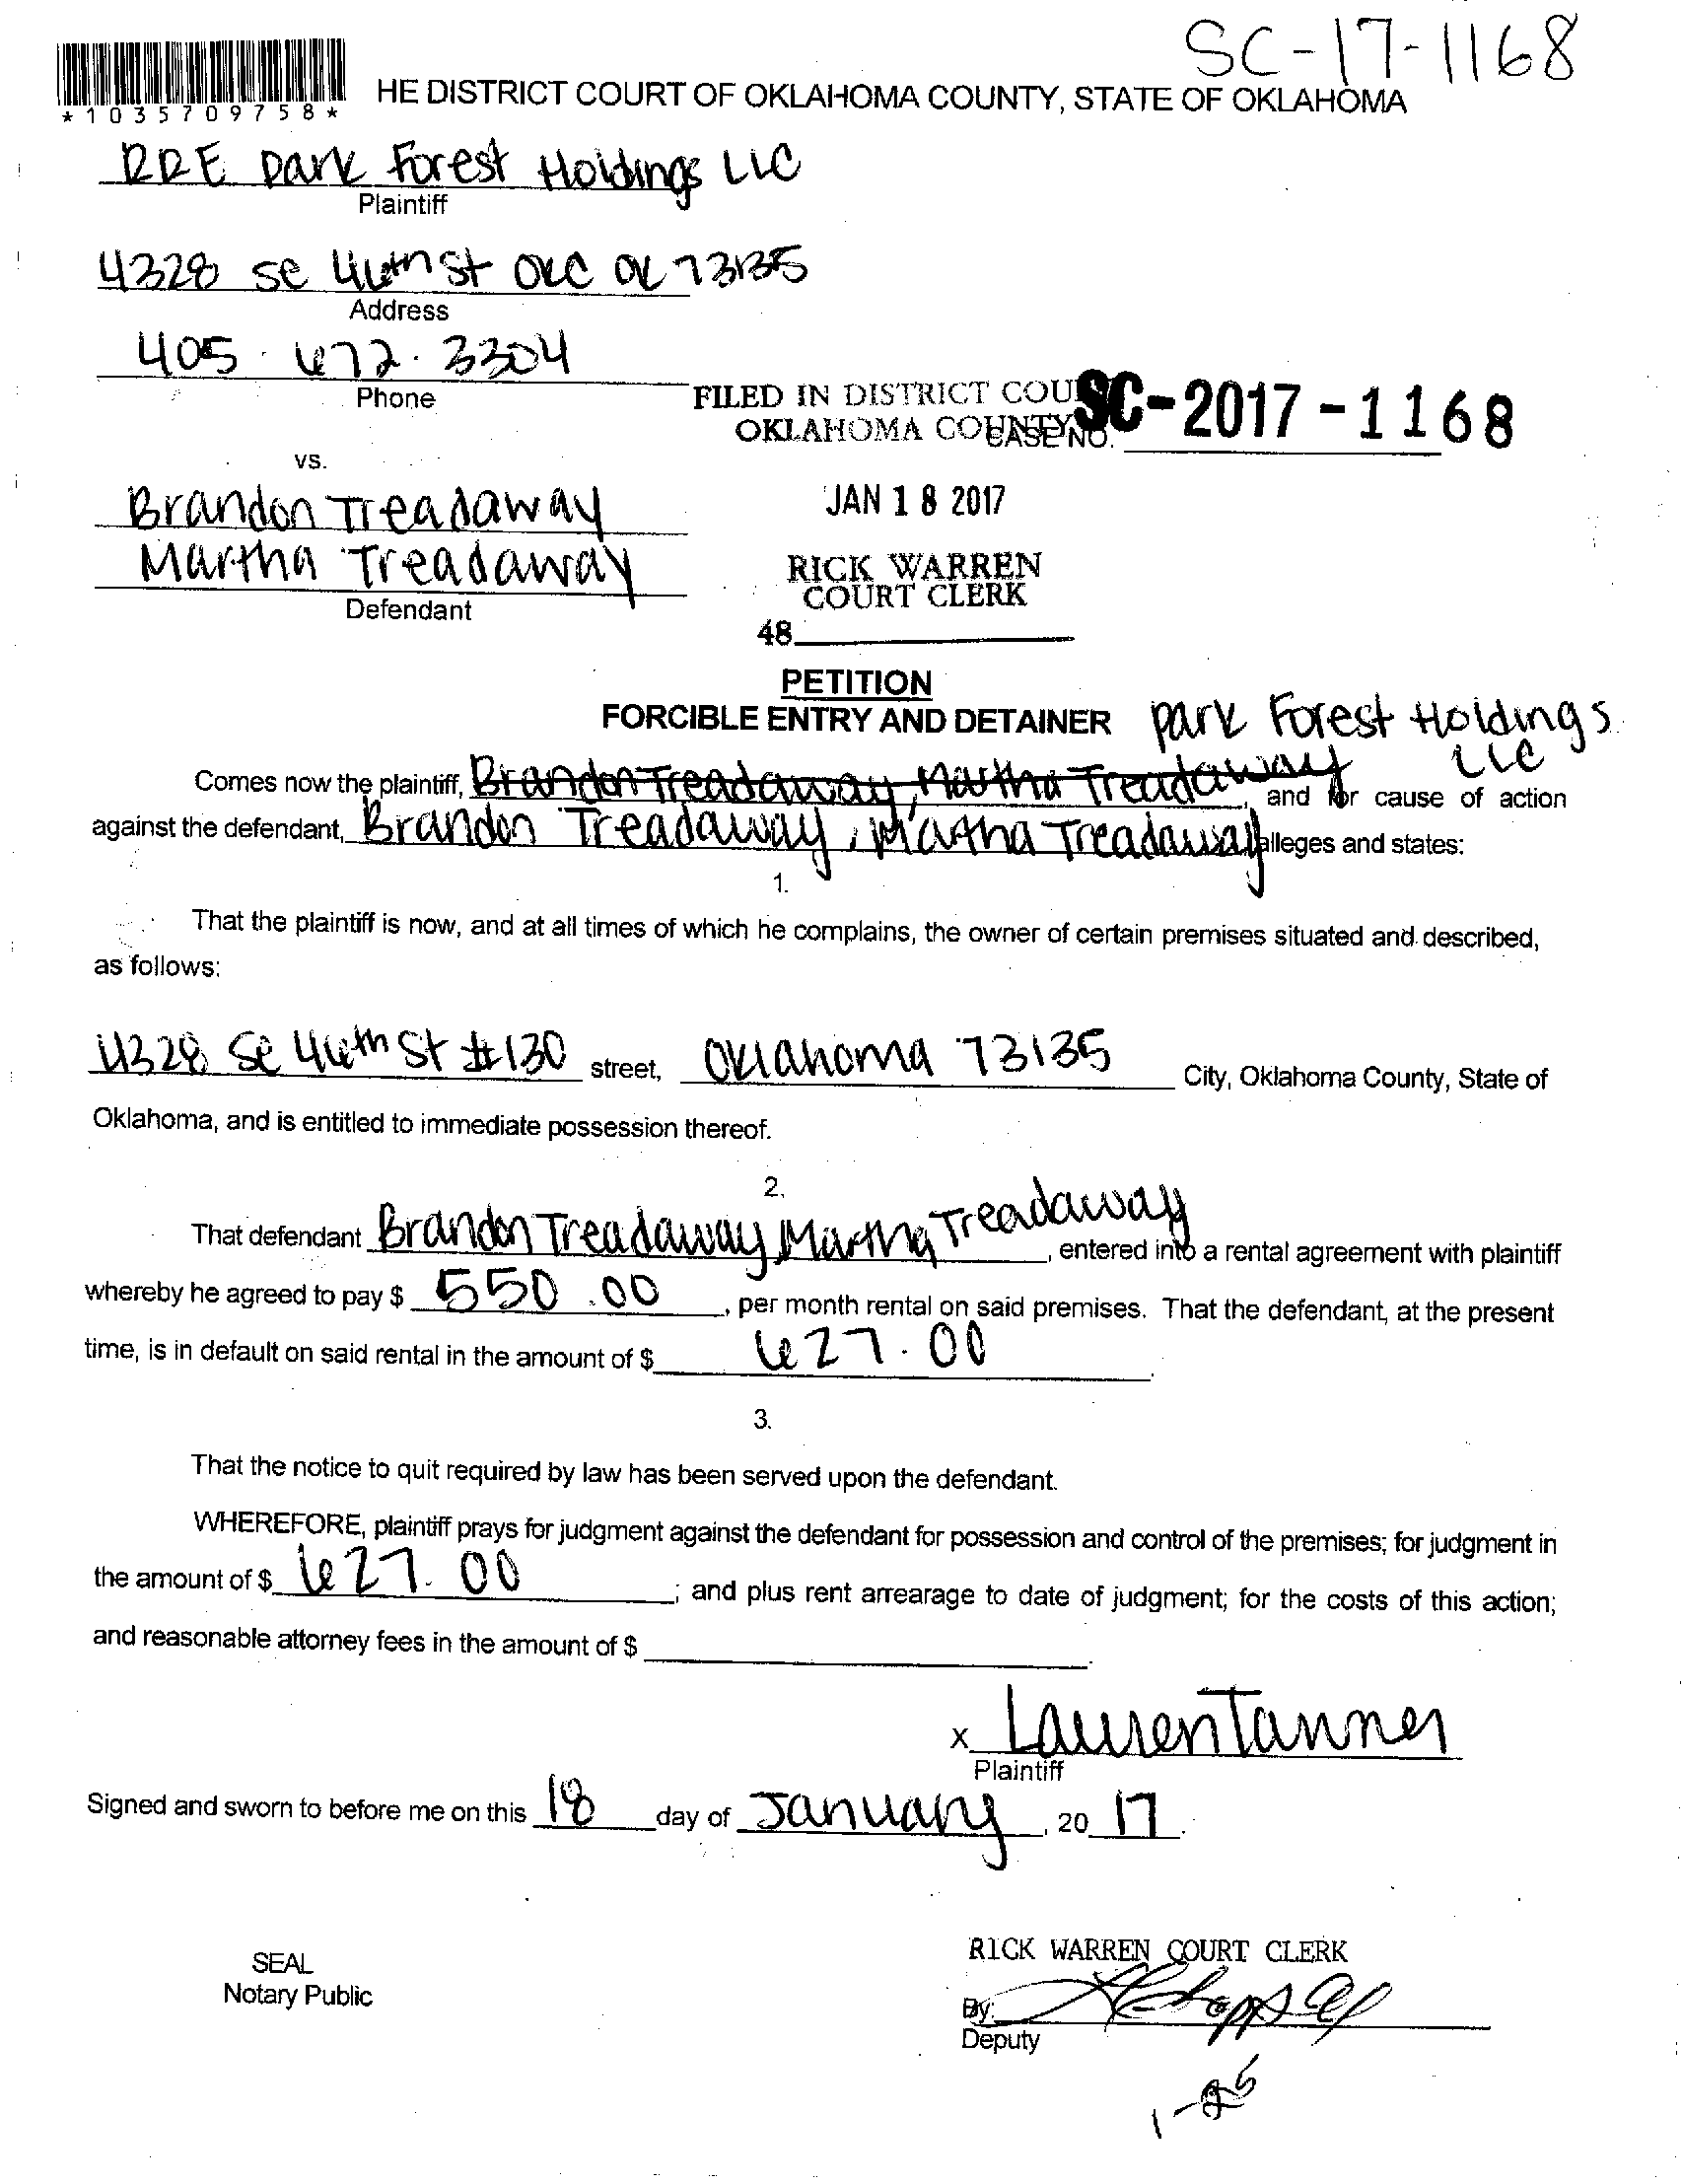 SC-17-1168
*1035709758*
HE DISTRICT COURT OF OKLAHOMA COUNTY, STATE OF OKLAHOMA
RRE Park Forest Holdings LLC
Plaintiff
4328 SE 46th St OKC OK 73135
Address
405 · 672 · 3304
Phone
FILED IN DISTRICT COU
OKLAHOMA COUNTY
CASE NO. SC-2017-1168
vs.
Brandon Treadaway
Martha Treadaway
Defendant
JAN 18 2017
RICK WARREN
COURT CLERK
48
PETITION
FORCIBLE ENTRY AND DETAINER Park Forest Holdings
LLC
Comes now the plaintiff, Brandon Treadaway, Martha Treadaway, and for cause of action
against the defendant, Brandon Treadaway, Martha Treadaway alleges and states:
1.
That the plaintiff is now, and at all times of which he complains, the owner of certain premises situated and described,
as follows:
4328 SE 46th St #130 street, Oklahoma 73135 City, Oklahoma County, State of
Oklahoma, and is entitled to immediate possession thereof.
2.
That defendant Brandon Treadaway, Martha Treadaway, entered into a rental agreement with plaintiff
whereby he agreed to pay $ 550.00, per month rental on said premises. That the defendant, at the present
time, is in default on said rental in the amount of $ 627.00.
3.
That the notice to quit required by law has been served upon the defendant.
WHEREFORE, plaintiff prays for judgment against the defendant for possession and control of the premises; for judgment in
the amount of $ 627.00; and plus rent arrearage to date of judgment; for the costs of this action;
and reasonable attorney fees in the amount of $.
x Lauren Tanner
Plaintiff
Signed and sworn to before me on this 18 day of January, 20 17.
SEAL
Notary Public
RICK WARREN COURT CLERK
By:
Deputy